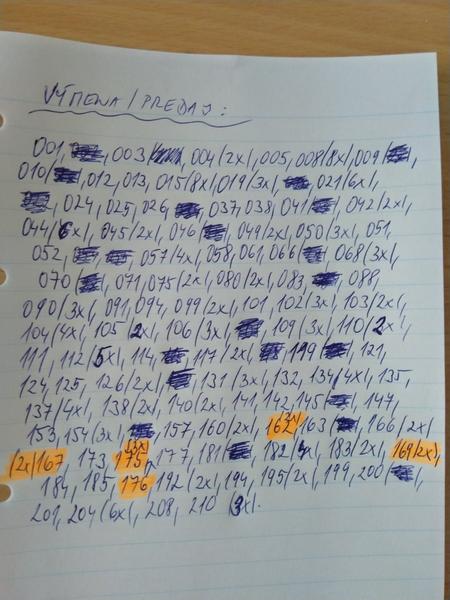 VÝMENA/PREDAJ:
001, 003, 004(2x), 005, 008(8x), 009
010, 012, 013, 015(8x), 019(3x), 021(6x),
024, 025, 026, 037, 038, 041, 042(2x),
044(6x), 045(2x), 046, 049(2x), 050(3x), 051,
052, 057(4x), 058, 061, 066, 068(3x),
070, 071, 075(2x), 080(2x), 083, 088,
090(3x), 091, 094, 099(2x), 101, 102(3x), 103(2x),
104(4x), 105 2x), 106(3x), 109(3x), 110(2x),
111, 112(5x), 114, 117(2x), 119, 121,
124, 125, 126(2x), 131(3x), 132, 134(4x), 135,
137(4x), 138(2x), 140(2x), 141, 142, 145, 147,
153, 154(3x), 157, 160(2x), 162, 163, 166(2x)
(2x)167, 173, 175, 177, 181, 182(4x), 183(2x), 169(2x),
184, 185, 176, 192(2x), 194, 195(2x), 199, 200
201, 204(6x), 208, 210 (3x).